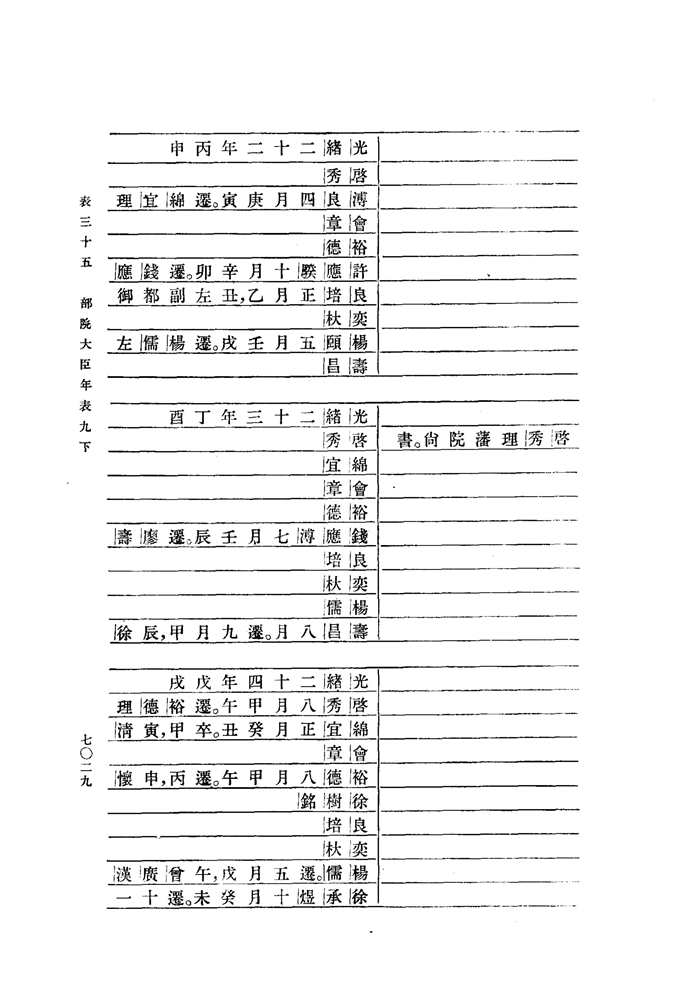 光緒二十二年丙申
啓秀
溥良四月庚寅遷。綿宜理
會章
裕德
許應騤十月辛卯遷。錢應
良培正月乙丑,左副都御
奕杕
楊頤五月壬戌遷。楊儒左
壽昌
光緒二十三年丁酉
啓秀理藩院尚書。
啓秀
綿宜
會章
裕德
錢應溥七月壬辰遷。廖壽
良培
奕杕
楊儒
壽昌八月。遷九月甲辰,徐
光緒二十四年戊戌
啓秀八月甲午遷。裕德理
綿宜正月癸丑卒。甲寅,清
會章
裕德八月甲午遷。丙申,懷
徐樹銘
良培
奕杕
楊儒遷。五月戊午,曾廣漢
徐承煜十月癸未遷。十一
表三十五 部院大臣年表九下
七〇二九